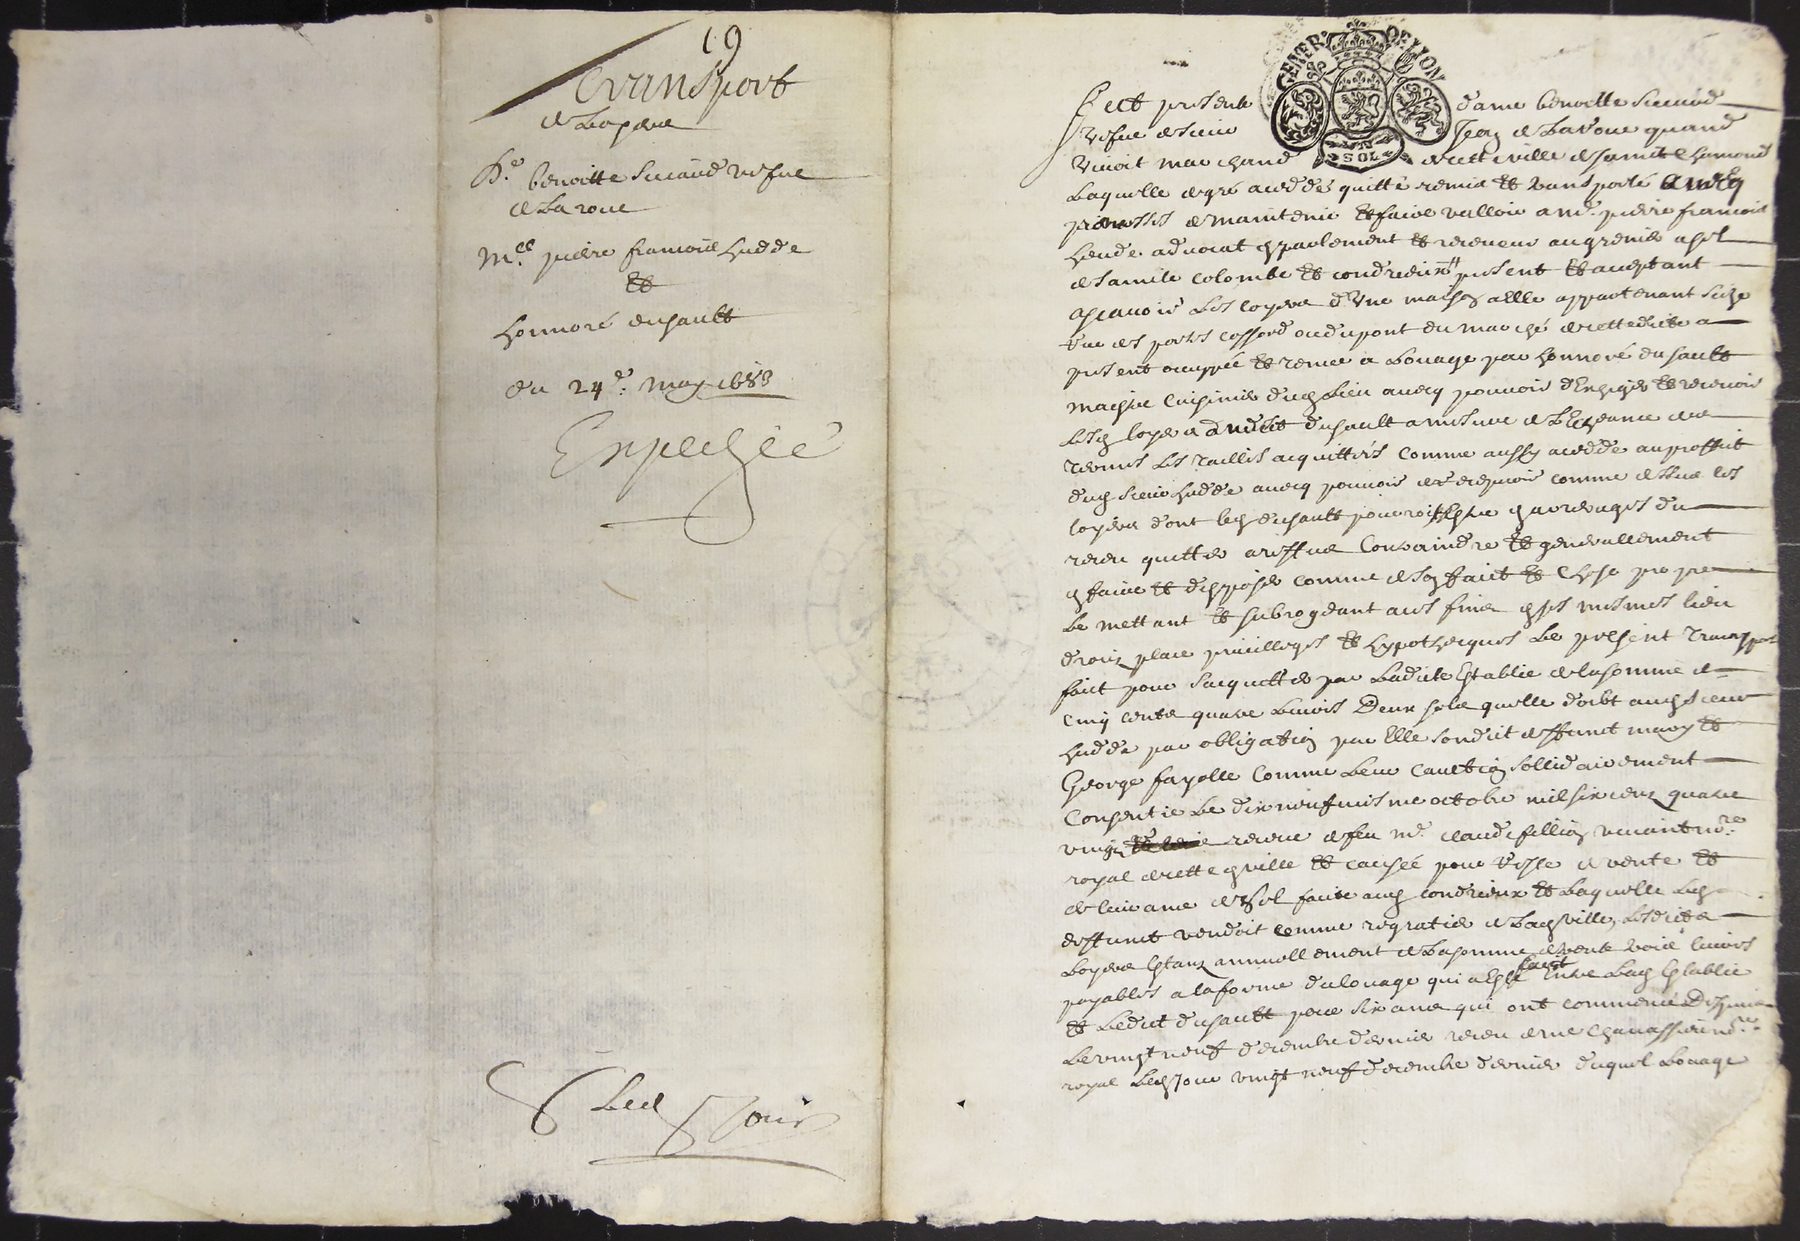 19
Transport
de Loyers
D.e benoitte Siccaud vefue
de Laroue
M.re pierre francois hedde
Et
honnoré dusault
du 24e. may 1683
Expediée
GENER DE LYON
UN SOL
fut presente dame benoitte Siccaud
vefue de sieur Jean de Laroue quand
vivoit marchand de cette ville de saint chamond
Laquelle de gré a ceddé quitté remis Et transporté avecq
promesses de maintenir Et faire valloir a me. pierre francois
hedde advocat en parlement Et receveur au grenier a sel
de sainte Colombe Et condrieux present Et acceptant
ascavoir Les loyers d'Une maison a Elle appartenant size
du pont du marché de cette dicte a
present occuppée Et tenue a Louage par honnoré dusault
maistre Cuisinier dud. Lieu avecq pouvoir d'Exiger Et recevoir
Lesd. loyers dudict dusault a mesure de L'Escheance des
termes comme aussy cedde au proffit
dud. sieur hedde avecq pouvoir de recepvoir comme dessus les
loyers dont led. dusault pourroit Estre en arrerages du
receu quitter Contraindre Et generallement
en faire Et disposer comme de son faict Et Chose propre
Le mettant Et subrogeant aux fins en ses mesmes lieu
droict place privilleges Et hypotheques Le present transport
faict pour s'acquitter par Ladicte Establie de la somme de
Cinq cents quatre Livres Deux sols quelle doibt aud. sieur
hedde par obligation par Elle son dict deffunct mary Et
George fayolle Comme Leur Caution sollidairement
Consentie Le dix neufviesme octobre mil six cens quatre
vingt receue de feu me. claude fillion vivant no.re
royal de cette ville Et causée pour reste de vente Et
delivrance de sel faite aud. Condrieux Et Laquelle Led.
deffunct vendoit comme regratier de Lad. ville, Lesdicts
Loyers Estant annuellement de La somme de trente trois livres
payables a la forme du louage qui a Esté faict Entre Lad. Establie
Et Ledict dusault pour six ans qui ont commencé
Le vingt neuf decembre dernier receu de me Chavassieu no.re
royal Led. Jour vingt neuf decembre dernier duquel Louage